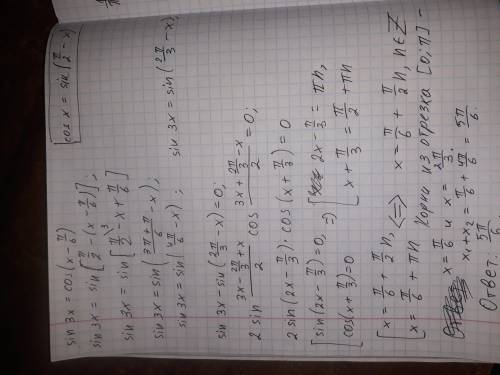 cos x = sin(π/2 - x)
sin 3x = cos(x - π/6)
sin 3x = sin[π/2 - (x - π/6)];
sin 3x = sin[π/2 - x + π/6]
sin 3x = sin(3π+π/6 - x);
sin 3x = sin(4π/6 - x); sin 3x = sin(2π/3 - x)
sin 3x - sin(2π/3 - x) = 0;
2 sin (3x - 2π/3 + x)/2 cos (3x + 2π/3 - x)/2 = 0;
2 sin(2x - π/3) · cos(x + π/3) = 0
[sin(2x - π/3) = 0, => [2x - π/3 = πn,
[cos(x + π/3) = 0 [x + π/3 = π/2 + πn
[x = π/6 + π/2 n, <=> x = π/6 + π/2 n, n∈Z
[x = π/6 + πn Корни из отрезка [0; π] -
x = π/6 и x = 2π/3.
x₁ + x₂ = π/6 + 4π/6 = 5π/6.
Ответ. 5π/6